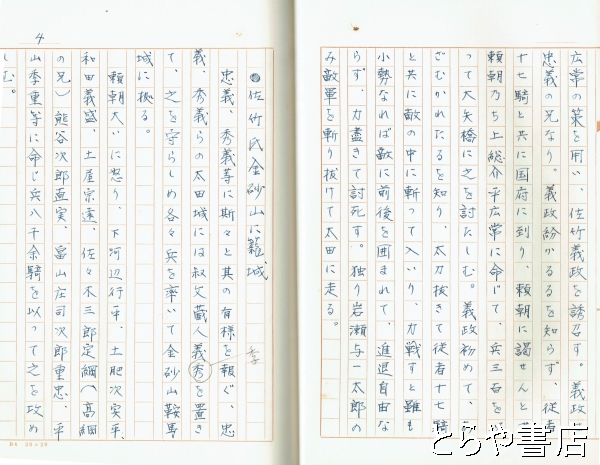 広常の策を用い、佐竹義政を誘召す。義政は
忠義の兄なり。義政紛かるるを知らず、従者
十七騎と共に国府に到り、頼朝に謁せんと
頼朝乃ち上総介平広常に命じて、兵三百を
って大矢橋に之を討たしむ。義政初めて、
ざむかれたるを知り、太刀抜きて従者十七騎
と共に敵の中に斬って入いり、力戦すと雖も
小勢なれば敵に前後を囲まれて、進退自由な
らず、力盡きて討死す。独り岩瀬与一太郎の
み敵軍を斬り抜けて太田に走る。
4
佐竹氏金砂山に籠城
忠義、秀義等に斯々と其の有様を報ぐ、忠
義、秀義らの太田城には叔父蔵人義秀を置き
季
て、之を守らしめ各々兵を率いて金砂山鞍馬
城に拠る。
頼朝大いに怒り、下河辺行平、土肥次実平、
和田義盛、土屋宗遠、佐々木三郎定綱（高綱
の兄）熊谷次郎直実、畠山庄司次郎重忠、平
山季重等に命じ兵八千余騎を以って之を攻め
しむ。
B4 20×20
とらや書店